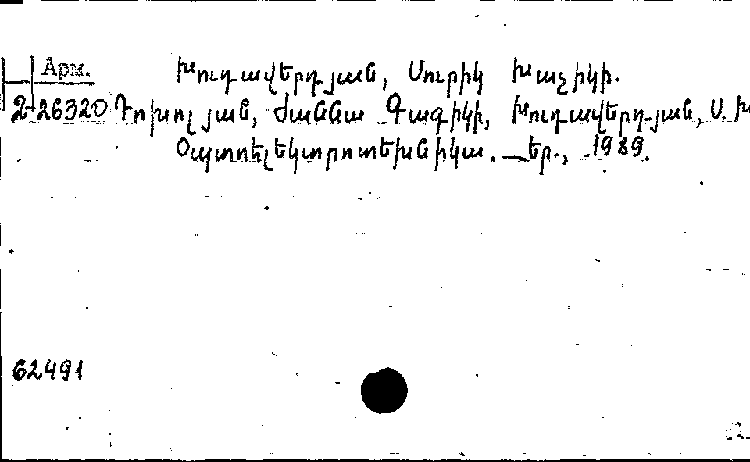 Арм. Խուդավերդյան, Սուրիկ Խաչիկի.
2-26320 Դոխոլյան, Ժաննա Գագիկի, Խուդավերդյան, Ս. Խ
Օպտոէլեկտրոտեխնիկա. — Եր., 1989.
62491